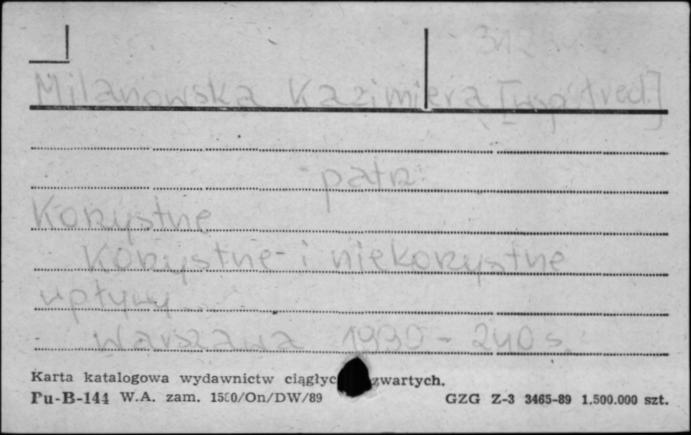 312
Milanowska Kazimiera [współred.]
patrz
Korzystne
Korzystne i niekorzystne
wpływy
Warszawa 1990 - 240 s.
Karta katalogowa wydawnictw ciągłyc zwartych.
Pu-B-144 W.A. zam. 1500/On/DW/89 GZG Z-3 3465-89 1.500.000 szt.